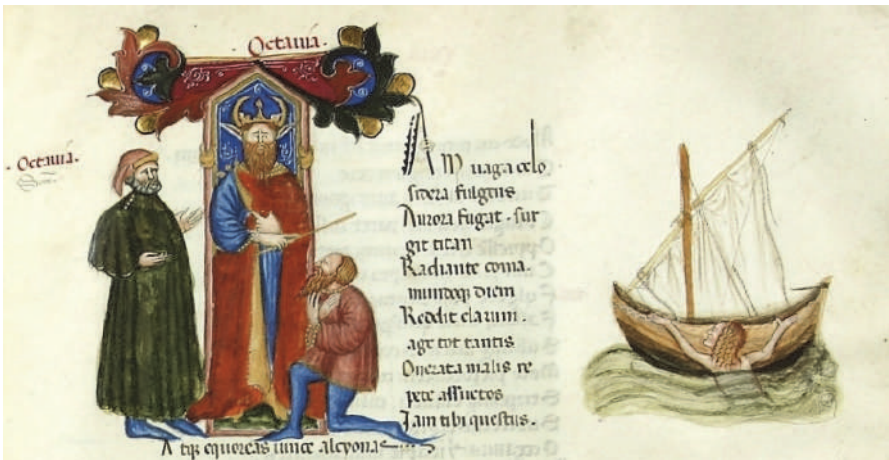 Octavia.
· Octavia.
Am vaga celo
sidera fulgens
Aurora fugat. sur
git titan
Radiante coma.
mundoq; diem
Reddit clarum.
age tot tantis
Onerata malis re
pete assuetos
Jam tibi questus.
Atq; equoreas vince alcyonas